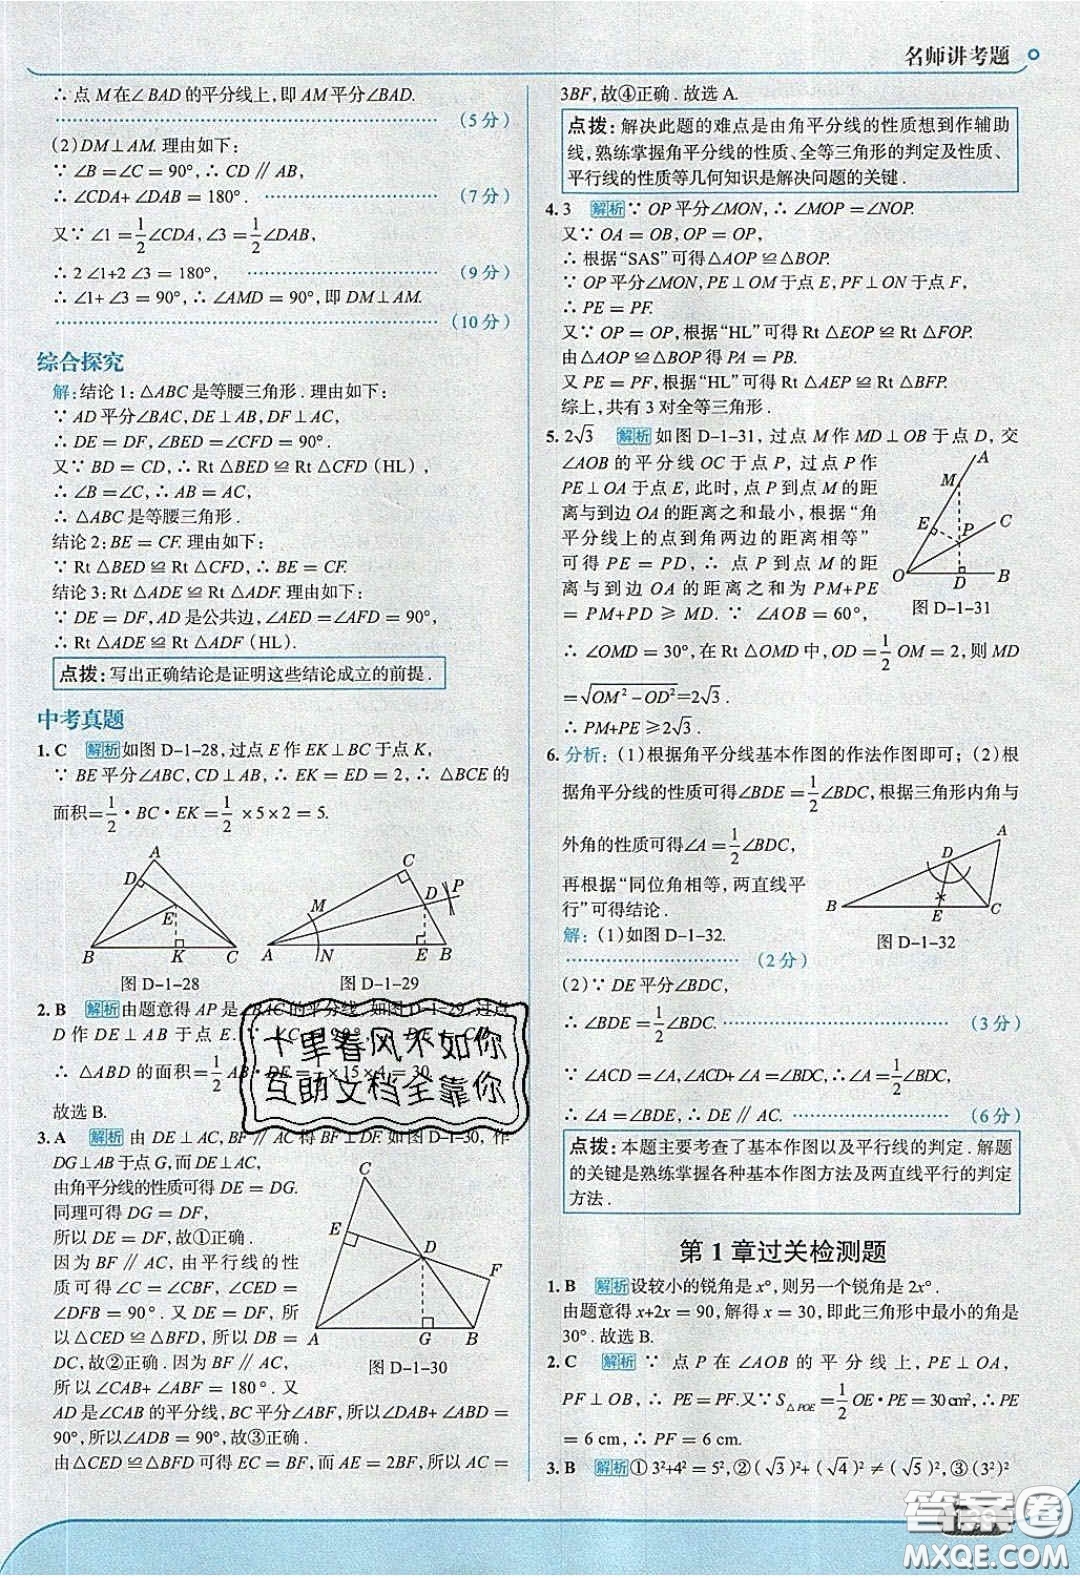 名师讲考题
∴ 点 M 在∠BAD 的平分线上,即 AM 平分∠BAD.
(5 分)
(2)DM⊥AM. 理由如下:
∵ ∠B = ∠C = 90°,∴ CD∥AB,
∴ ∠CDA+ ∠DAB = 180°. (7 分)
又∵ ∠1 = 1/2 ∠CDA,∠3 = 1/2 ∠DAB,
∴ 2∠1+2∠3 = 180°, (9 分)
∴ ∠1+ ∠3 = 90°,∴ ∠AMD = 90°,即 DM⊥AM.
(10 分)
综合探究
解:结论 1:△ABC 是等腰三角形. 理由如下:
∵ AD 平分∠BAC,DE⊥AB,DF⊥AC,
∴ DE = DF,∠BED = ∠CFD = 90°.
又∵ BD = CD,∴ Rt△BED≌Rt△CFD(HL),
∴ ∠B = ∠C,∴ AB = AC,
∴ △ABC 是等腰三角形.
结论 2:BE = CF. 理由如下:
∵ Rt△BED≌Rt△CFD,∴ BE = CF.
结论 3:Rt△ADE≌Rt△ADF. 理由如下:
∵ DE = DF,AD 是公共边,∠AED = ∠AFD = 90°,
∴ Rt△ADE≌Rt△ADF(HL).
点拨:写出正确结论是证明这些结论成立的前提.
中考真题
1. C 解析 如图 D-1-28,过点 E 作 EK⊥BC 于点 K,
∵ BE 平分∠ABC,CD⊥AB,∴ EK = ED = 2,∴ △BCE 的
面积 = 1/2 · BC · EK = 1/2 ×5×2 = 5.
A D E B K C
图 D-1-28
C P D M A N E B
图 D-1-29
2. B 解析 由题意得 AP 是∠BAC 的平分线. 如图 D-1-29,过点
D 作 DE⊥AB 于点 E.
∴ △ABD 的面积 = 1/2 AB · DE = ×15×4 = 30
故选 B.
十里春风不如你
互助文档全靠你
3. A 解析 由 DE⊥AC,BF∥AC 得 BF⊥DF. 如图 D-1-30,作
DG⊥AB 于点 G,而 DE⊥AC,
由角平分线的性质可得 DE = DG.
同理可得 DG = DF,
所以 DE = DF,故①正确.
因为 BF∥AC,由平行线的性
质可得∠C = ∠FBD,∠CED =
∠DFB = 90°. 又 DE = DF,所
以△CED≌△BFD,所以 DB =
DC,故②正确. 因为 BF∥AC,
所以∠CAB+ ∠ABF = 180°. 又
C E D F A G B
图 D-1-30
AD 是∠CAB 的平分线,BC 平分∠ABF,所以∠DAB+ ∠ABD =
90°,所以∠ADB = 90°,故③正确.
由△CED≌△BFD 可得 EC = BF,而 AE = 2BF,所以 AC =
3BF,故④正确. 故选 A.
点拨:解决此题的难点是由角平分线的性质想到作辅助
线,熟练掌握角平分线的性质、全等三角形的判定及性质、
平行线的性质等几何知识是解决问题的关键.
4. 3 解析 ∵ OP 平分∠MON,∴ ∠MOP = ∠NOP.
又∵ OA = OB,OP = OP,
∴ 根据“SAS”可得△AOP≌△BOP.
∵ OP 平分∠MON,PE⊥OM 于点 E,PF⊥ON 于点 F,
∴ PE = PF.
又∵ OP = OP,根据“HL”可得 Rt△EOP≌Rt△FOP.
由△AOP≌△BOP 得 PA = PB.
又 PE = PF,根据“HL”可得 Rt△AEP≌Rt△BFP.
综上,共有 3 对全等三角形.
5. 2√3 解析 如图 D-1-31,过点 M 作 MD⊥OB 于点 D,交
∠AOB 的平分线 OC 于点 P,过点 P 作
PE⊥OA 于点 E,此时,点 P 到点 M 的距
离与到边 OA 的距离之和最小,根据“角
平分线上的点到角两边的距离相等”
可得 PE = PD,∴ 点 P 到点 M 的距
离与到边 OA 的距离之和为 PM+PE
= PM+PD ≥ MD. ∵ ∠AOB = 60°,
A M E P C O D B
图 D-1-31
∴ ∠OMD = 30°,在 Rt△OMD 中,OD = 1/2 OM = 2,则 MD
= √(OM²-OD²) = 2√3.
∴ PM+PE ≥ 2√3.
6. 分析:(1)根据角平分线基本作图的作法作图即可;(2)根
据角平分线的性质可得∠BDE = 1/2 ∠BDC,根据三角形内角与
外角的性质可得∠A = 1/2 ∠BDC,
再根据“同位角相等,两直线平
行”可得结论.
A D B E C
图 D-1-32
解:(1)如图 D-1-32.
(2 分)
(2)∵ DE 平分∠BDC,
∴ ∠BDE = 1/2 ∠BDC. (3 分)
∵ ∠ACD = ∠A,∠ACD+ ∠A = ∠BDC,∴ ∠A = 1/2 ∠BDC,
∴ ∠A = ∠BDE,∴ DE∥AC. (6 分)
点拨:本题主要考查了基本作图以及平行线的判定. 解题
的关键是熟练掌握各种基本作图方法及两直线平行的判定
方法.
第 1 章过关检测题
1. B 解析 设较小的锐角是 x°,则另一个锐角是 2x°.
由题意得 x+2x = 90,解得 x = 30,即此三角形中最小的角是
30°. 故选 B.
2. C 解析 ∵ 点 P 在∠AOB 的平分线上,PE⊥OA,
PF⊥OB,∴ PE = PF. 又∵ S△POE = 1/2 OE · PE = 30 cm²,∴ PE
= 6 cm,∴ PF = 6 cm.
3. B 解析 ①3²+4² = 5²,②(√3)²+(√4)² ≠ (√5)²,③(3²)²
答案圈
MXQE.COM